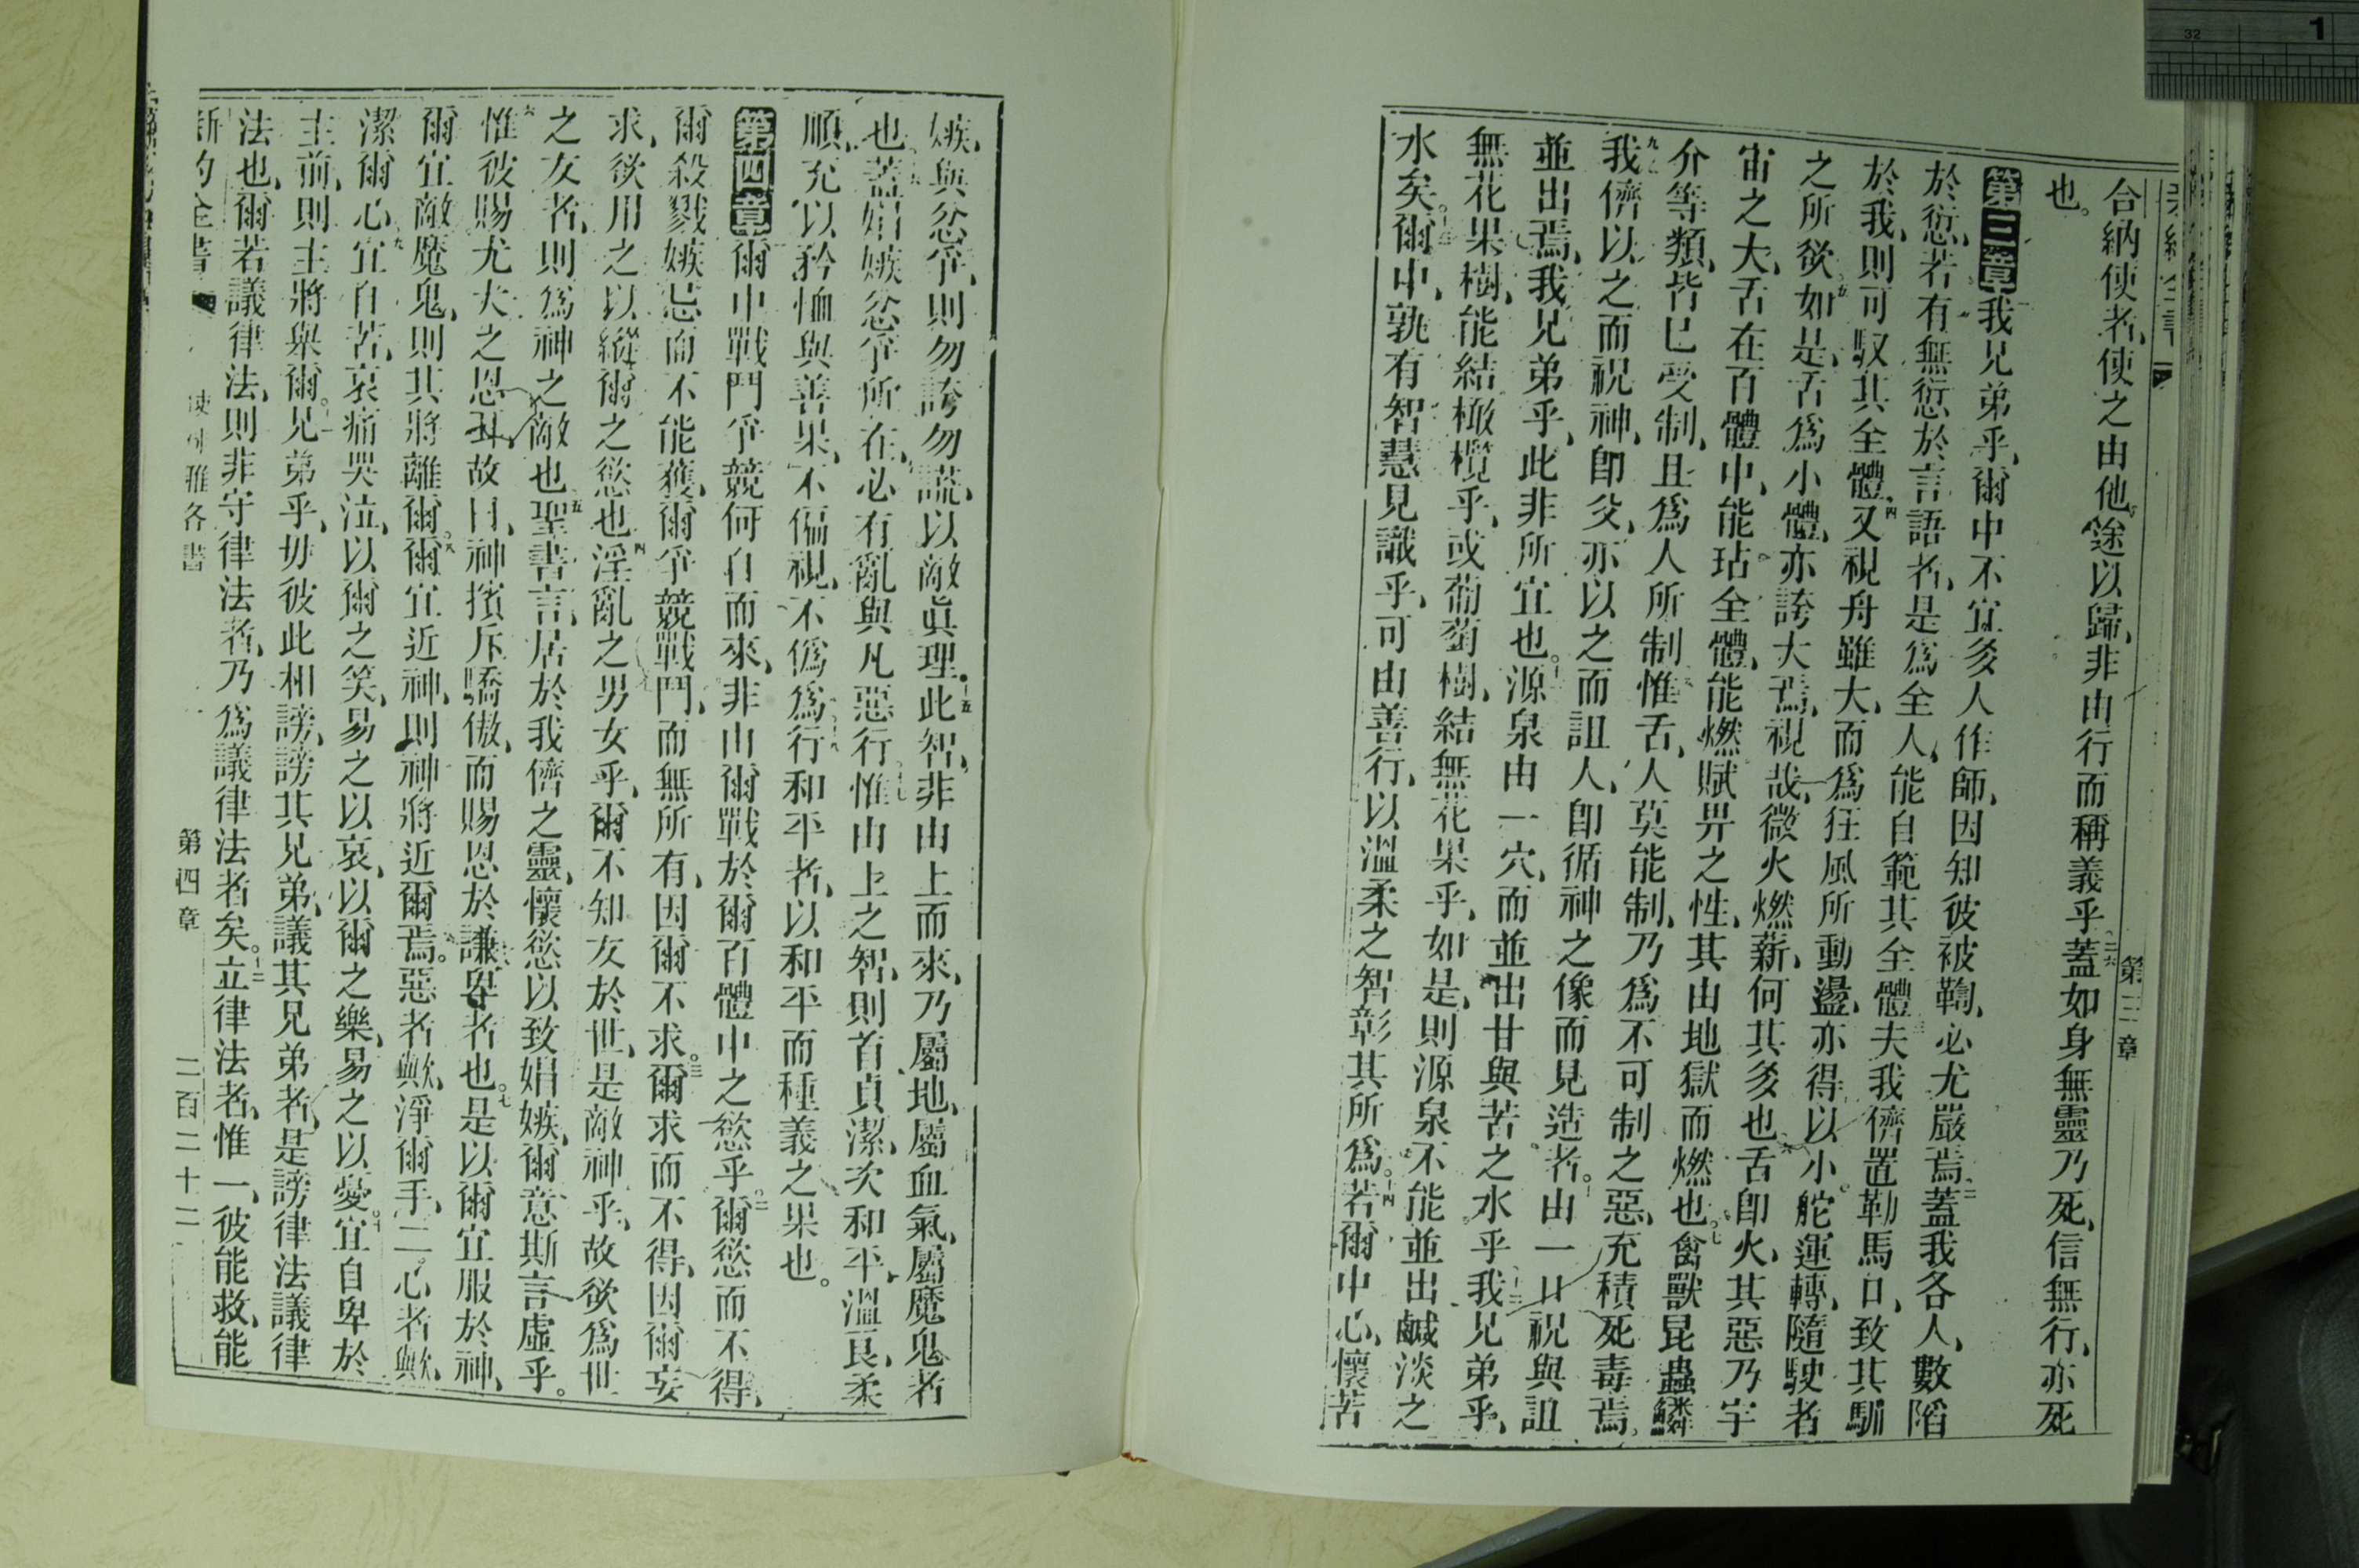 合納使者、使之由他途以歸、非由行而稱義乎。二六蓋如身無靈乃死、信無行、亦死
也。
第三章
第三章一我兄弟乎、爾中不宜多人作師、因知彼被鞫、必尤嚴焉。二蓋我各人、數陷
於愆、若有無愆於言語者、是爲全人、能自範其全體。三夫我儕置勒馬口、致其馴
於我、則可馭其全體。四又視舟雖大、而爲狂風所動盪、亦得以小舵運轉、隨駛者
之所欲。五如是、舌爲小體、亦誇大焉、視哉、微火燃薪、何其多也。六舌卽火、其惡乃宇
宙之大、舌在百體中、能玷全體、能燃賦畀之性、其由地獄而燃也。七禽獸昆蟲鱗
介等類、皆已受制、且爲人所制。八惟舌、人莫能制、乃爲不可制之惡、充積死毒焉。
九我儕以之而祝神、卽父、亦以之而詛人、卽循神之像而見造者。十由一口祝與詛
並出焉、我兄弟乎、此非所宜也。十一源泉由一穴、而並出甘與苦之水乎。十二我兄弟乎、
無花果樹、能結橄欖乎、或葡萄樹、結無花果乎、如是、則源泉不能並出鹹淡之
水矣。十三爾中、孰有智慧見識乎、可由善行、以溫柔之智彰其所爲。十四若爾中心、懷苦
嫉、與忿爭、則勿誇勿謊、以敵眞理。十五此智、非由上而來、乃屬地、屬血氣、屬魔鬼者
也。十六蓋娼嫉忿爭所在、必有亂與凡惡行。十七惟由上之智、則首貞潔、次和平、溫良、柔
順、充以矜恤與善果、不偏視、不僞爲。十八行和平者、以和平而種義之果也。
第四章爾中戰鬥爭競何自而來、非由爾戰於爾百體中之慾乎。二爾慾而不得、
爾殺戮嫉忌而不能獲、爾爭競戰鬥、而無所有、因爾不求。三爾求而不得、因爾妄
求、欲用之以縱爾之慾也。四淫亂之男女乎、爾不知友於世、是敵神乎、故欲爲世
之友者、則爲神之敵也。五聖書言、居於我儕之靈、懷慾以致娼嫉、爾意斯言虛乎。
六惟彼賜尤大之恩、故曰、神擯斥驕傲、而賜恩於謙卑者也。七是以爾宜服於神、
爾宜敵魔鬼、則其將離爾。八爾宜近神、則神將近爾焉。惡者歟、淨爾手、二心者歟、
潔爾心。九宜自苦、哀痛哭泣、以爾之笑、易之以哀、以爾之樂、易之以憂。十宜自卑於
主前、則主將舉爾。十一兄弟乎、毋彼此相謗、謗其兄弟、議其兄弟者、是謗律法議律
法也、爾若議律法、則非守律法者、乃爲議律法者矣。十二立律法者、惟一、彼能救、能
新約全書 使徒雅各書 第四章 二百二十二